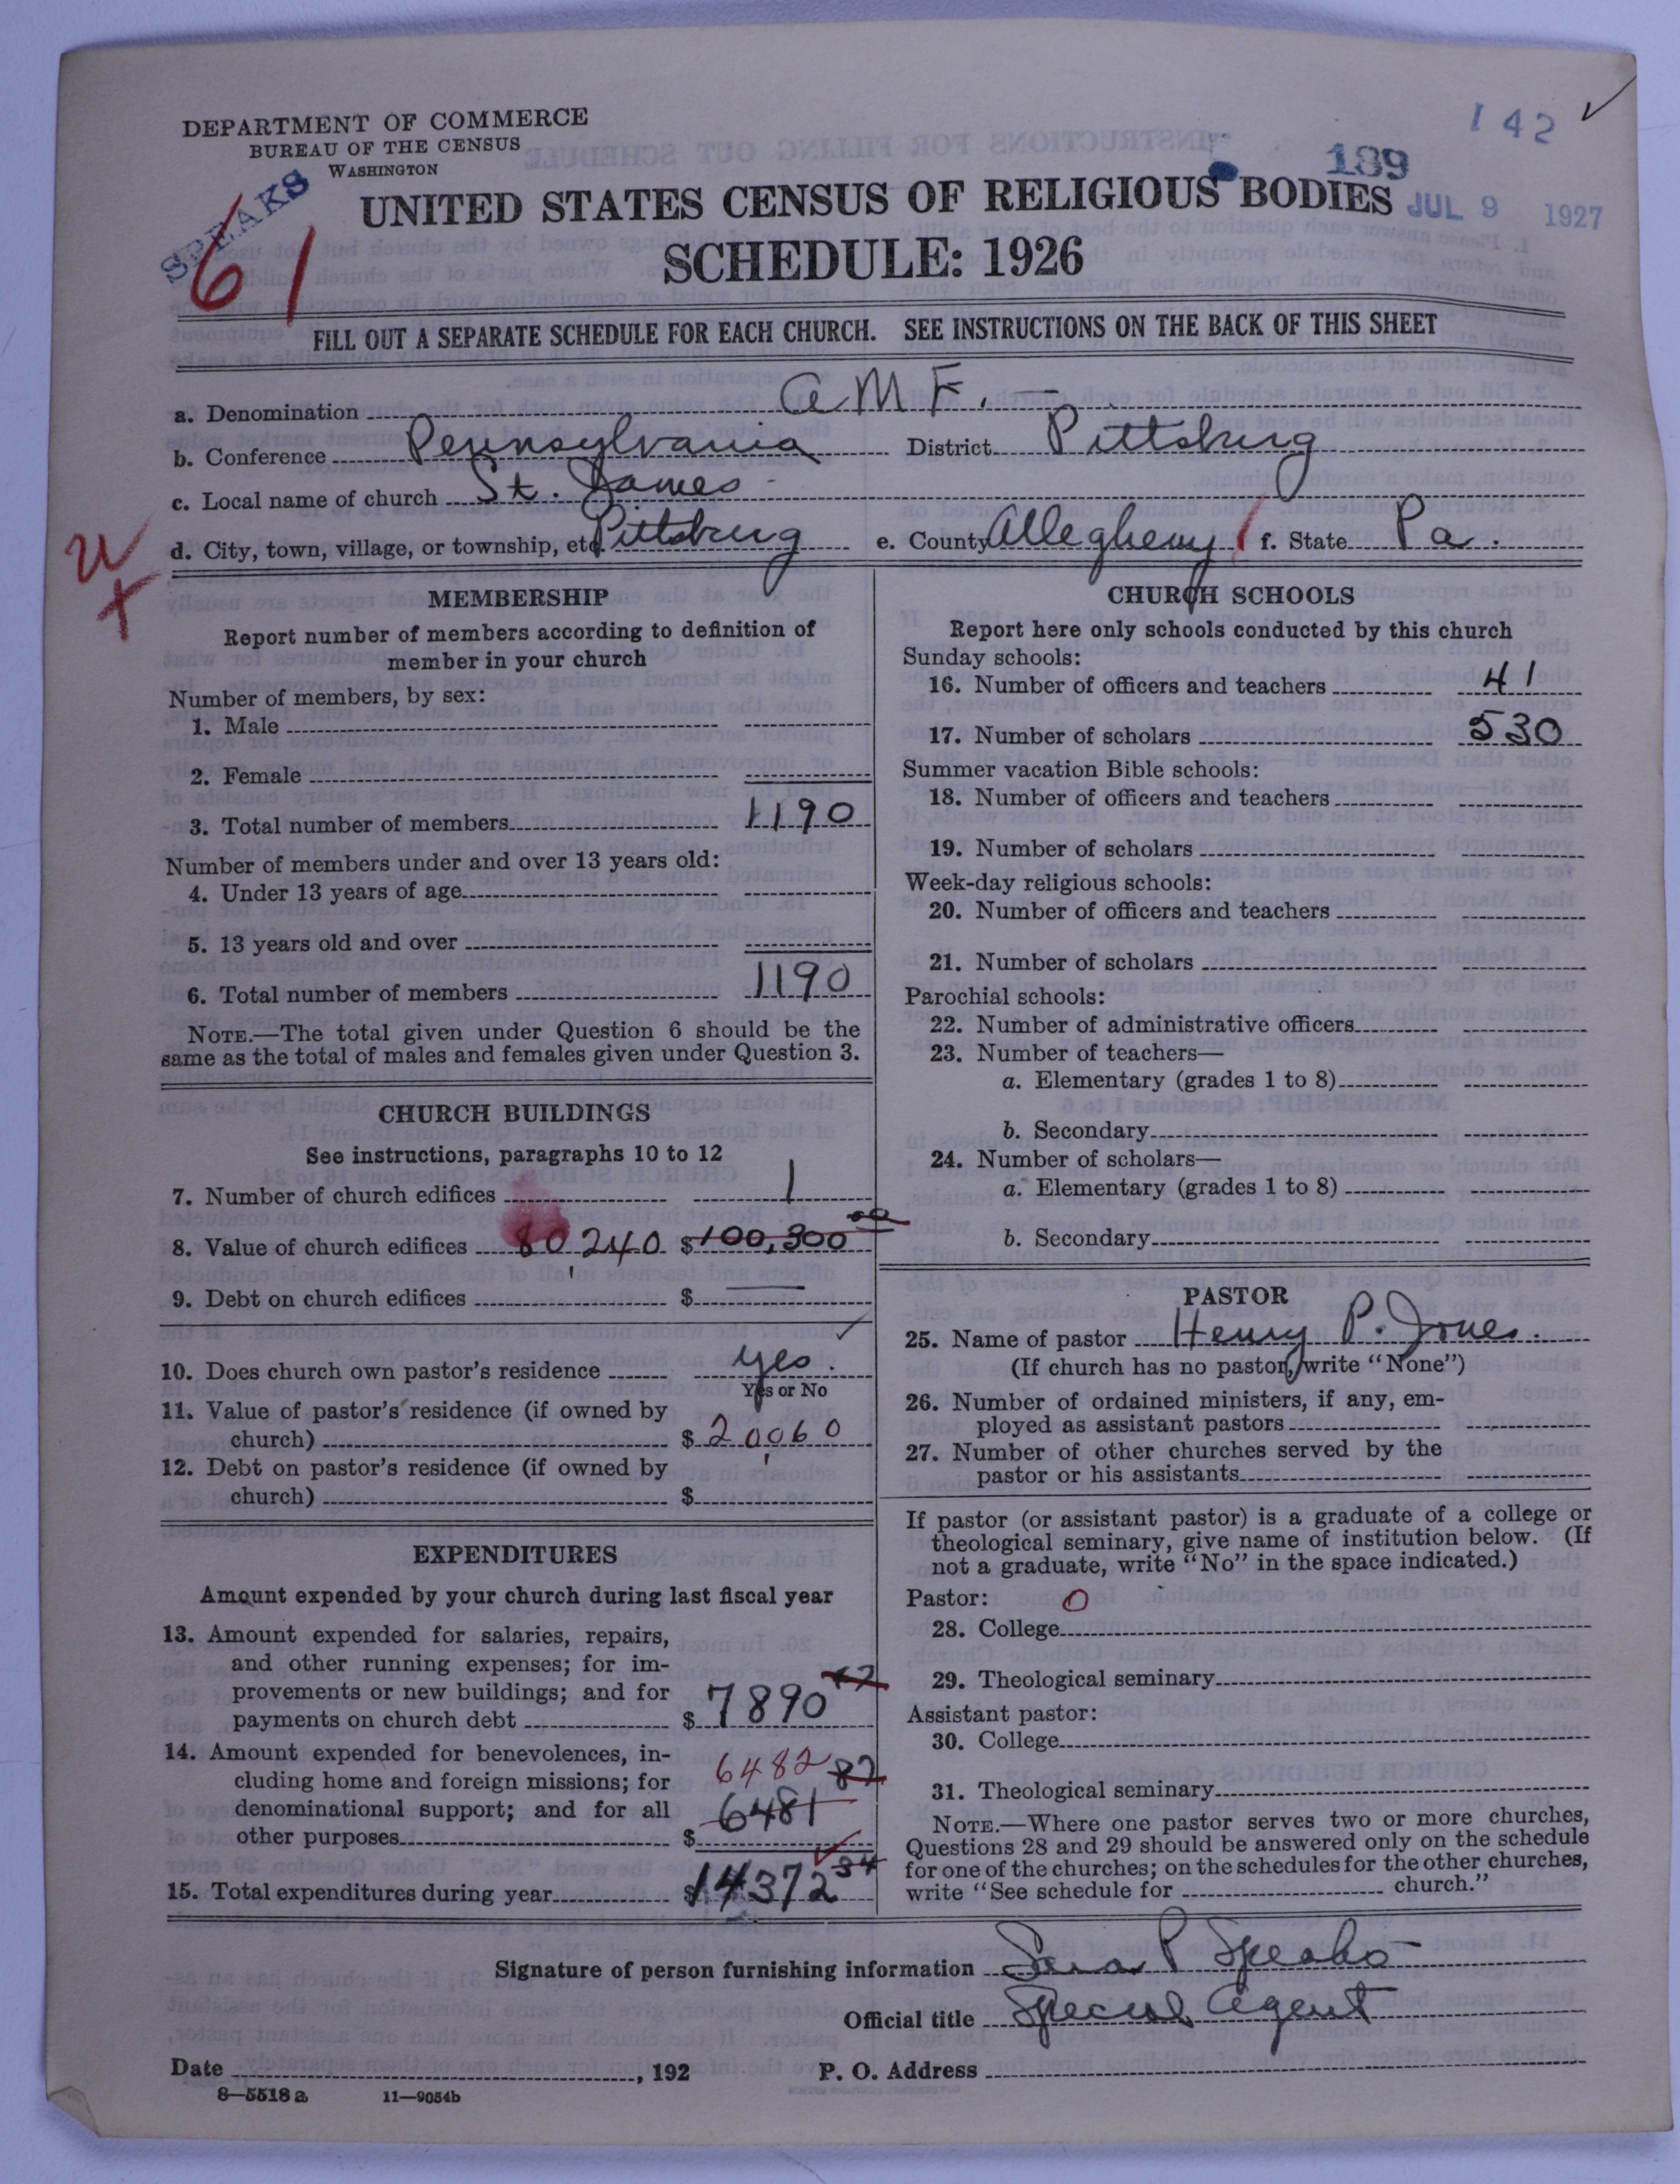 DEPARTMENT OF COMMERCE
BUREAU OF THE CENSUS
WASHINGTON
142
189
JUL 9 1927
SPEAKS
61
UNITED STATES CENSUS OF RELIGIOUS BODIES
SCHEDULE: 1926
FILL OUT A SEPARATE SCHEDULE FOR EACH CHURCH. SEE INSTRUCTIONS ON THE BACK OF THIS SHEET
a. Denomination A M E. —
b. Conference Pennsylvania District Pittsburg
c. Local name of church St. James
d. City, town, village, or township, etc. Pittsburg e. County Allegheny f. State Pa.
MEMBERSHIP
Report number of members according to definition of
member in your church
Number of members, by sex:
1. Male
2. Female
3. Total number of members 1190
Number of members under and over 13 years old:
4. Under 13 years of age
5. 13 years old and over
6. Total number of members 1190
NOTE.—The total given under Question 6 should be the
same as the total of males and females given under Question 3.
CHURCH BUILDINGS
See instructions, paragraphs 10 to 12
7. Number of church edifices 1
8. Value of church edifices 80,240 $100,300 00
9. Debt on church edifices $ —
10. Does church own pastor's residence yes.
Yes or No
11. Value of pastor's residence (if owned by
church) $ 20,060
12. Debt on pastor's residence (if owned by
church) $
EXPENDITURES
Amount expended by your church during last fiscal year
13. Amount expended for salaries, repairs,
and other running expenses; for im-
provements or new buildings; and for
payments on church debt $ 7890 47
14. Amount expended for benevolences, in-
cluding home and foreign missions; for
denominational support; and for all
other purposes $ 6482 6481 87
15. Total expenditures during year $ 14372 34
CHURCH SCHOOLS
Report here only schools conducted by this church
Sunday schools:
16. Number of officers and teachers 41
17. Number of scholars 530
Summer vacation Bible schools:
18. Number of officers and teachers
19. Number of scholars
Week-day religious schools:
20. Number of officers and teachers
21. Number of scholars
Parochial schools:
22. Number of administrative officers
23. Number of teachers—
a. Elementary (grades 1 to 8)
b. Secondary
24. Number of scholars—
a. Elementary (grades 1 to 8)
b. Secondary
PASTOR
25. Name of pastor Henry P. Jones.
(If church has no pastor, write "None")
26. Number of ordained ministers, if any, em-
ployed as assistant pastors
27. Number of other churches served by the
pastor or his assistants
If pastor (or assistant pastor) is a graduate of a college or
theological seminary, give name of institution below. (If
not a graduate, write "No" in the space indicated.)
Pastor: 0
28. College
29. Theological seminary
Assistant pastor:
30. College
31. Theological seminary
NOTE.—Where one pastor serves two or more churches,
Questions 28 and 29 should be answered only on the schedule
for one of the churches; on the schedules for the other churches,
write "See schedule for church."
Signature of person furnishing information P Speaks
Official title Special Agent
Date , 192 P. O. Address
8—5518 a 11—9054b